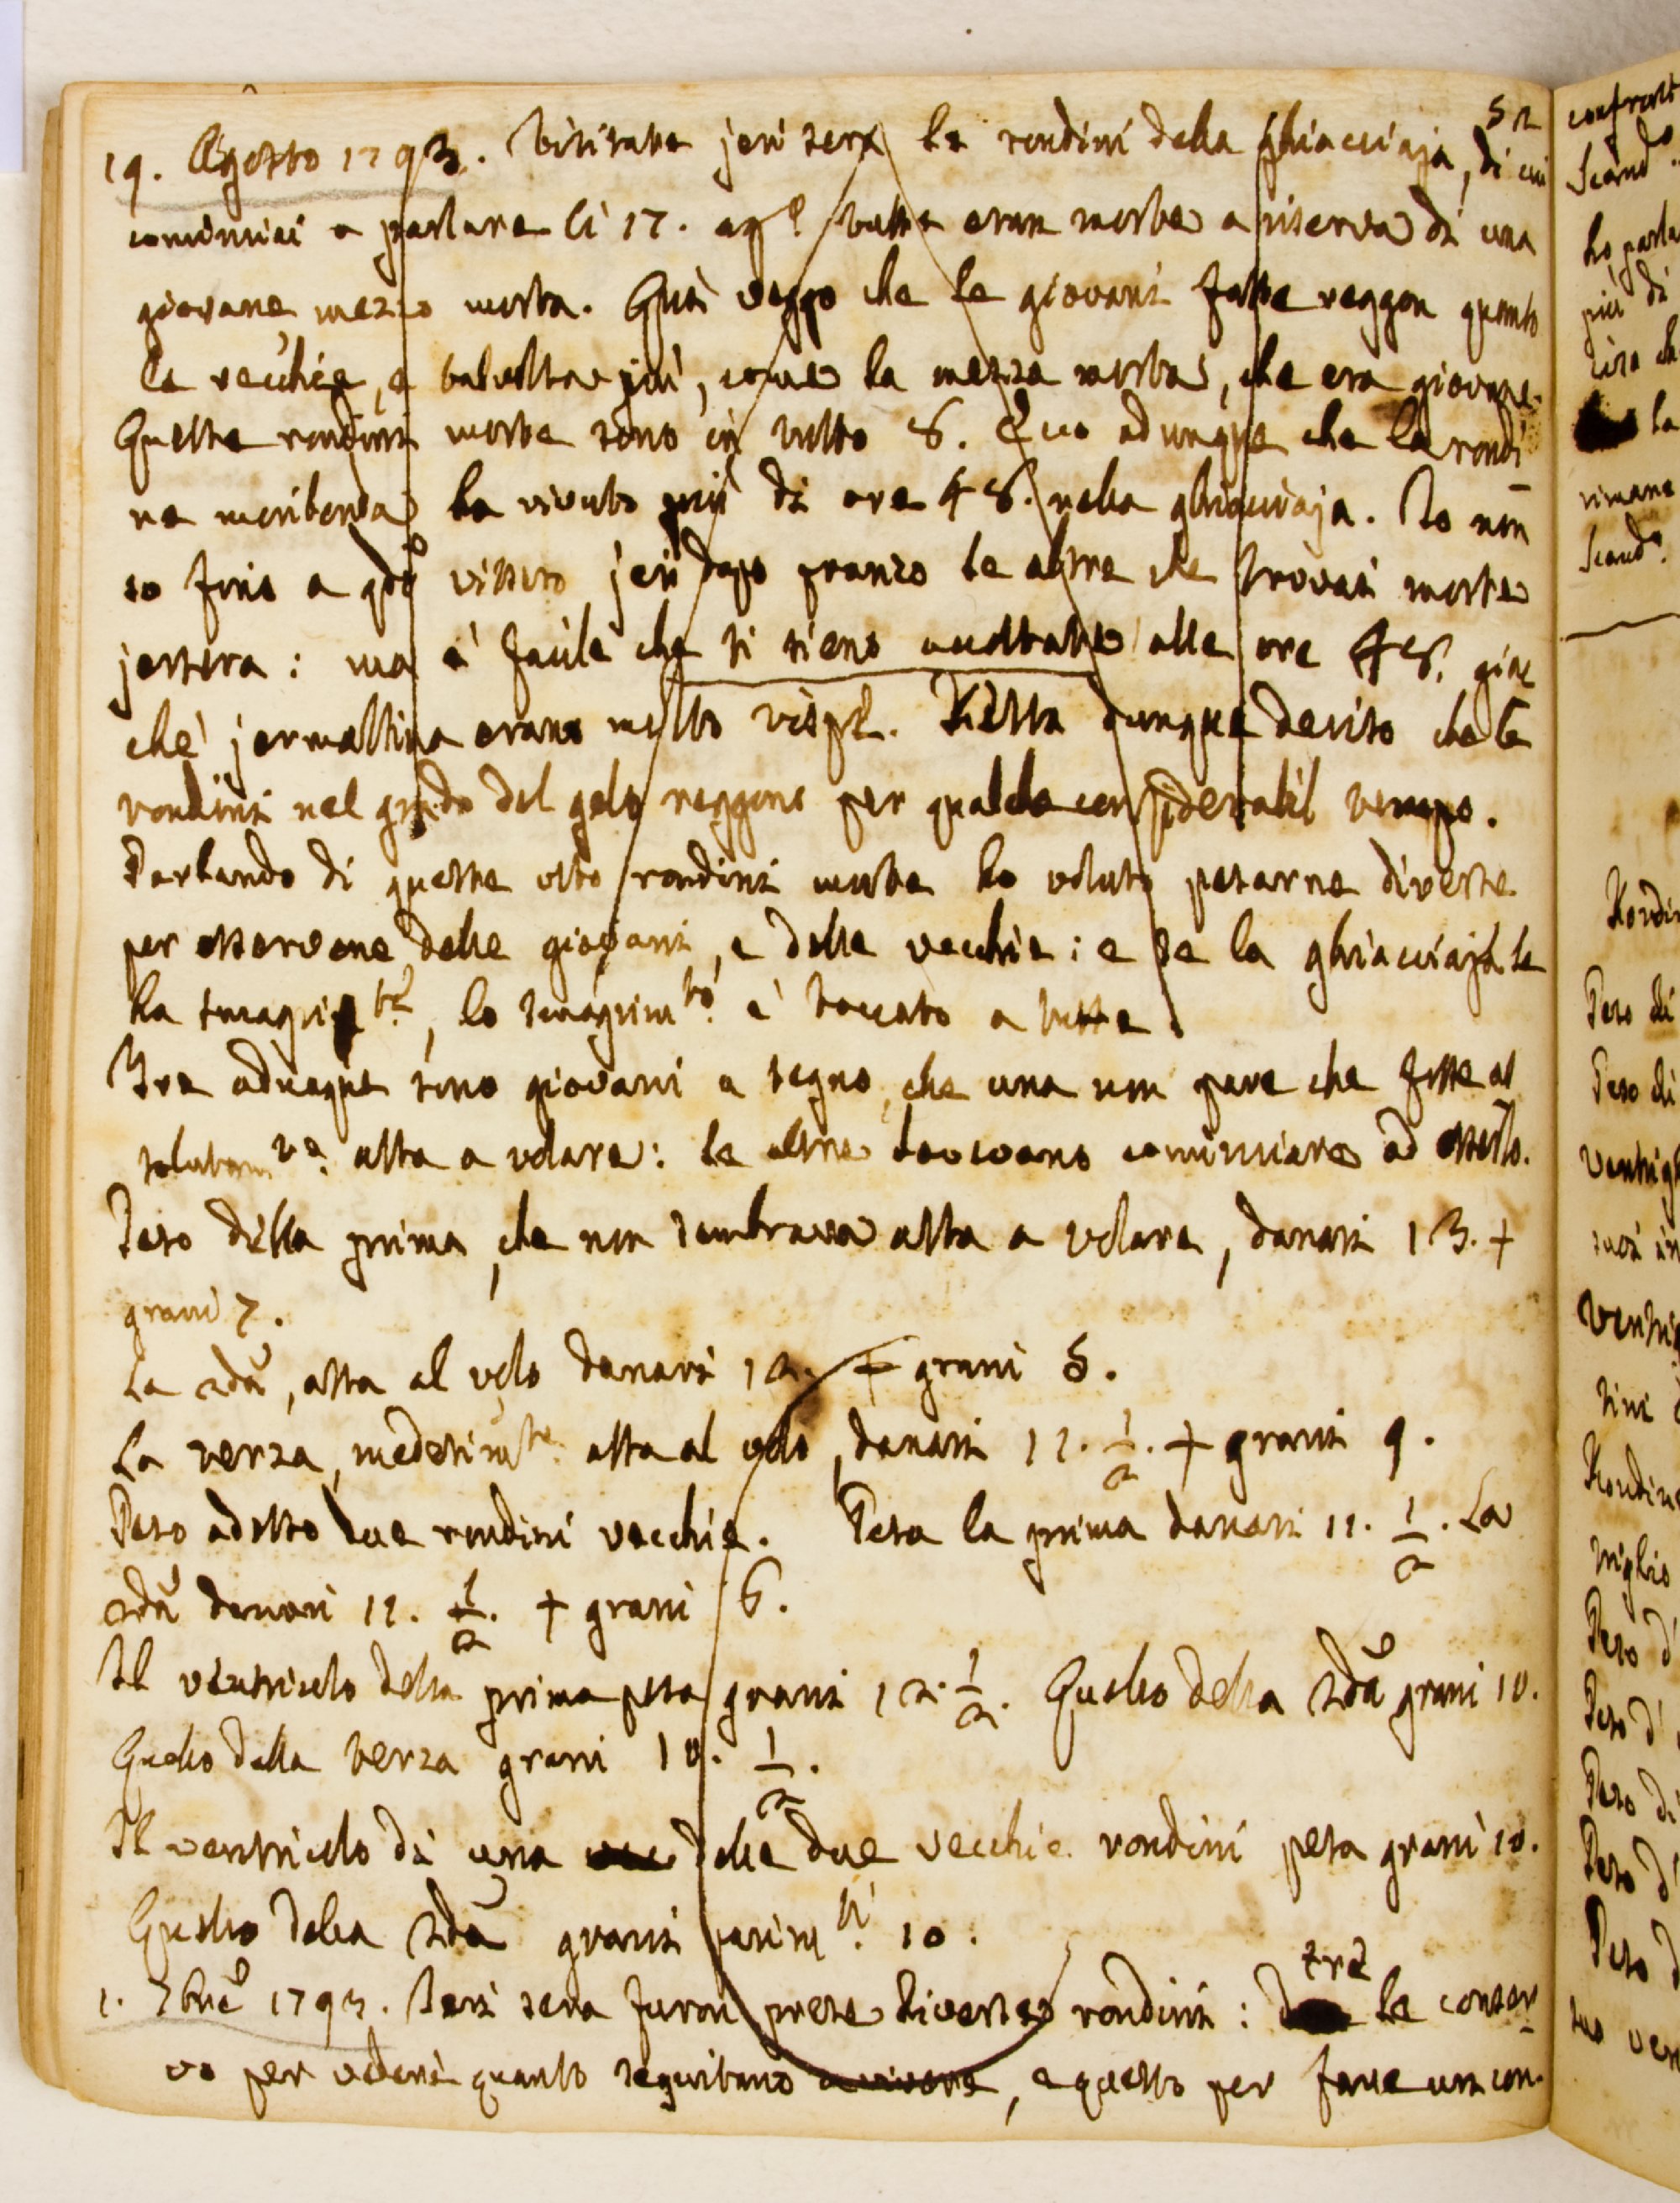 52
19. Agosto 1793. Visitate jeri sera le rondini della ghiacciaja, di cui
cominciai a parlare li 17. ag.º tutte eran morte a riserva di una
giovane mezzo morta. Qui veggo che le giovani fatte reggon quanto
le vecchie, e talvolta più, come la mezza morta, che era giovane.
Queste rondini morte sono in tutto 8. Ecco adunque che la rondi
ne moribonda ha vivuto più di ore 48. nella ghiacciaja. Io non
so fino a qdo vissero jeri dopo pranzo le altre che trovai morte
jersera: ma è facile che si sieno accostate alle ore 48. giac
chè jermattina erano molto vispe. Resta dunque deciso che le
rondini nel grado del gelo reggono per qualche considerabil tempo.
Parlando di queste otto rondini morte ho voluto pesarne diverse
per esservene delle giovani, e delle vecchie: e se la ghiacciaja le
ha smagrite, lo smagrim.to è toccato a tutte.
Tre adunque sono giovani a segno, che una non pare che fosse as
solutam.te atta a volare: le altre dovevano cominciare ad esserlo.
Peso della prima, che non sembrava atta a volare, danari 13. +
grani 7.
La 2da, atta al volo danari 12. + grani 5.
La terza, medesim.te atta al volo, danari 11. 1/2. + grani 9.
Peso adesso due rondini vecchie. Pesa la prima danari 11. 1/2. La
2da danari 11. 1/2. + grani 6.
Il ventricolo della prima pesa grani 12. 1/2. Quello della 2da grani 10.
Quello della terza grani 10. 1/2.
Il ventricolo di una delle due vecchie rondini pesa grani 10.
Quello della 2da grani parim.ti 10.
1. 7bre 1793. Jeri sera furon prese diverse rondini: tre le conser
vo per vedere quanto seguitano a vivere, e questo per farne un con-
confront
Scand
ho parla
più di
la
rimane
Scand.
Rondin
Peso di
Peso di
Ventrigl
Rondine
Peso di
Peso di
Peso di
Peso di
Peso d